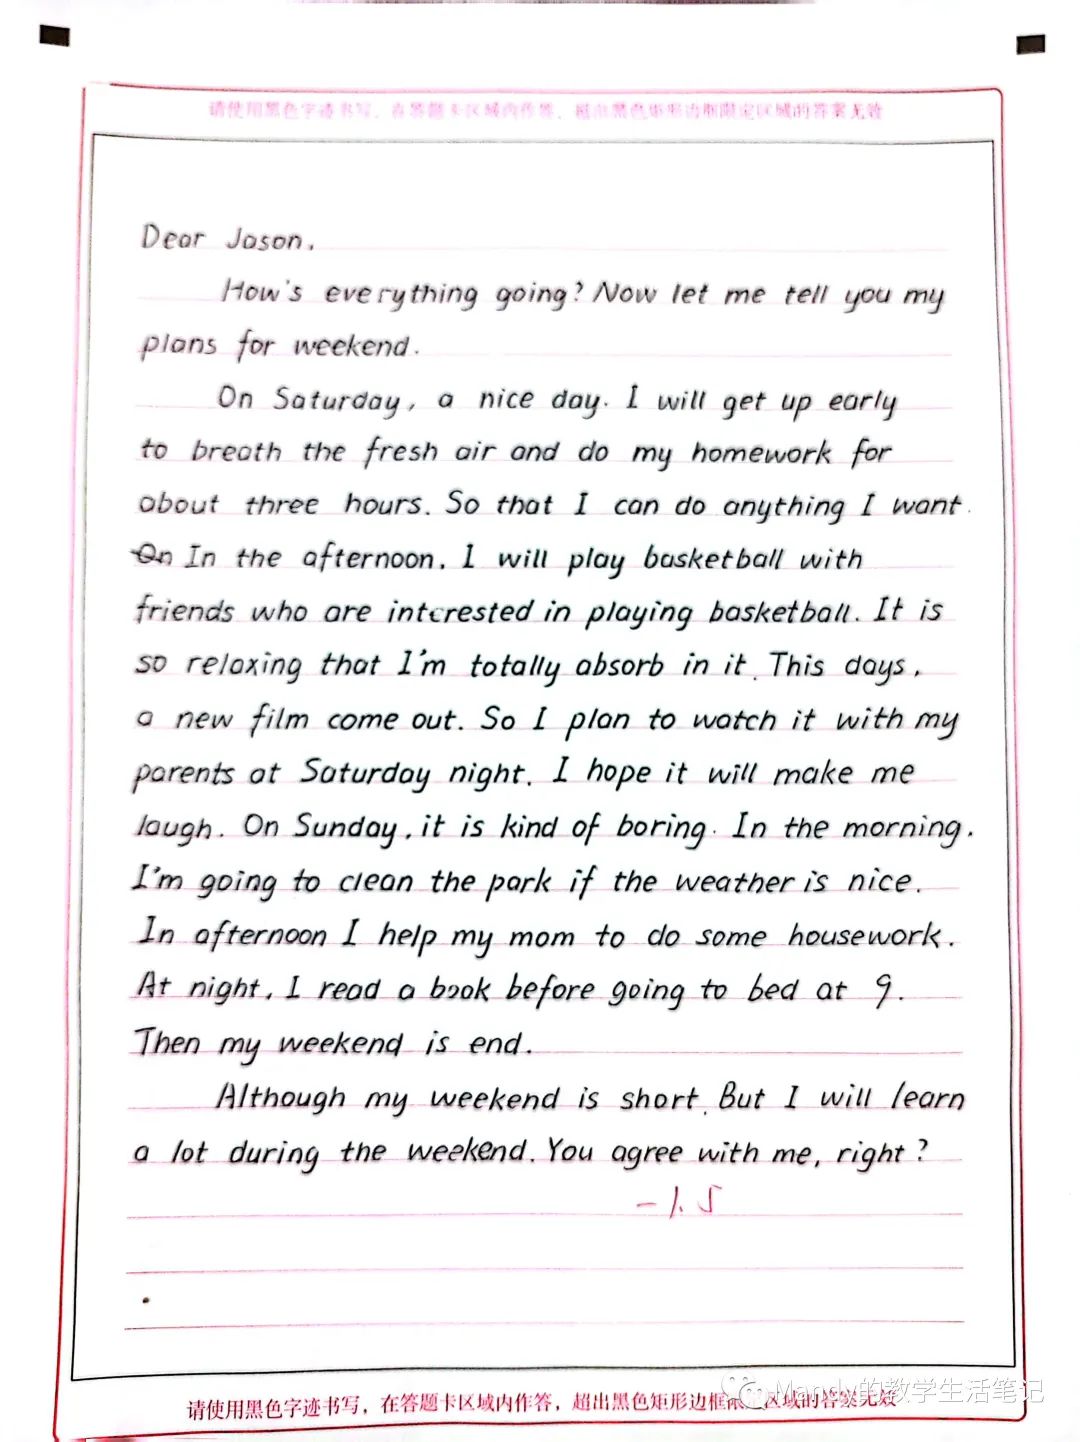 请使用黑色字迹书写，在答题卡区域内作答，超出黑色矩形边框限定区域的答案无效
Dear Jason,
How's everything going? Now let me tell you my
plans for weekend.
On Saturday, a nice day. I will get up early
to breath the fresh air and do my homework for
about three hours. So that I can do anything I want.
On In the afternoon, I will play basketball with
friends who are interested in playing basketball. It is
so relaxing that I'm totally absorb in it. This days,
a new film come out. So I plan to watch it with my
parents at Saturday night. I hope it will make me
laugh. On Sunday, it is kind of boring. In the morning,
I'm going to clean the park if the weather is nice.
In afternoon I help my mom to do some housework.
At night, I read a book before going to bed at 9.
Then my weekend is end.
Although my weekend is short. But I will learn
a lot during the weekend. You agree with me, right?
-1.5
Mandy的教学生活笔记
请使用黑色字迹书写，在答题卡区域内作答，超出黑色矩形边框限 区域的答案无效